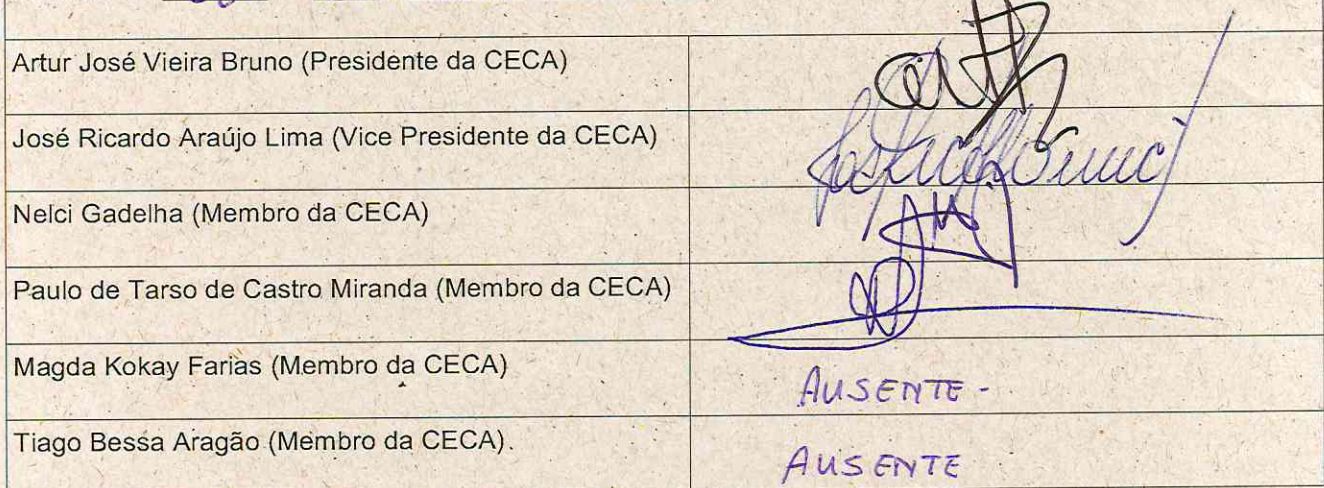 Artur José Vieira Bruno (Presidente da CECA)
José Ricardo Araújo Lima (Vice Presidente da CECA)
Nelci Gadelha (Membro da CECA)
Paulo de Tarso de Castro Miranda (Membro da CECA)
Magda Kokay Farias (Membro da CECA) AUSENTE -
Tiago Bessa Aragão (Membro da CECA). AUSENTE